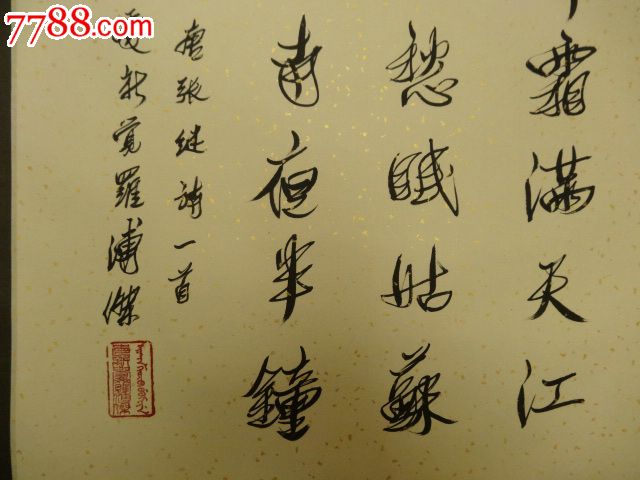 7788.com
霜滿天江
愁眠姑蘇
寺夜半鐘
唐张继诗一首
愛新覚羅溥傑